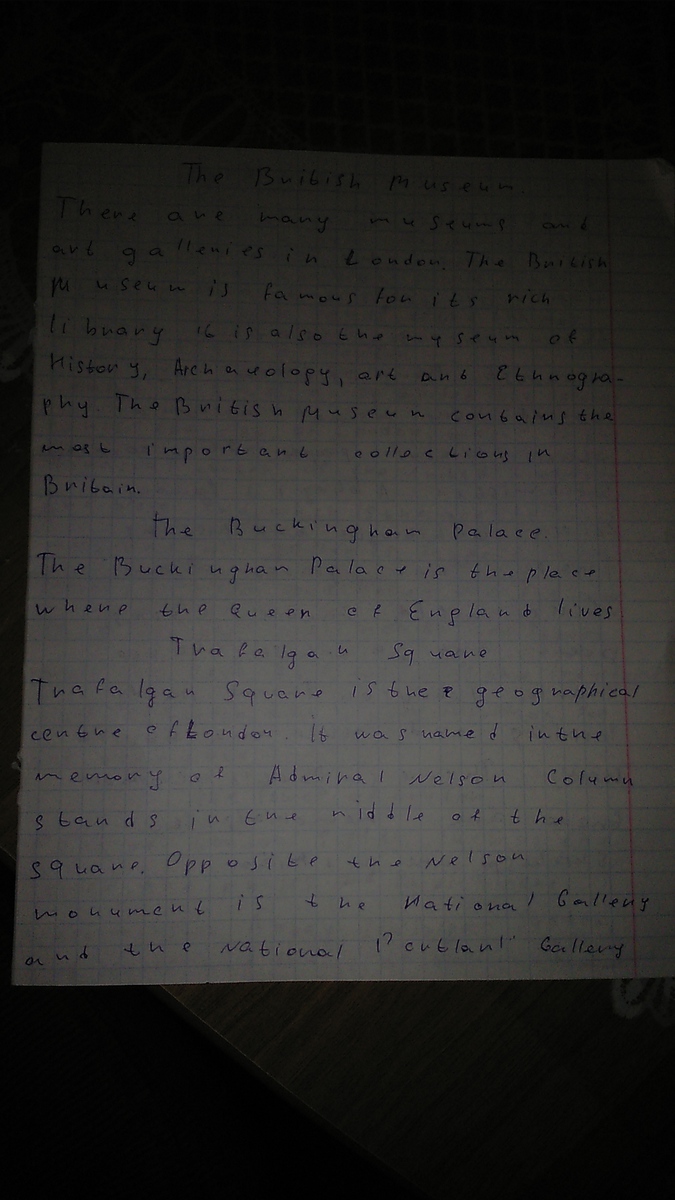 The British Museum.
There are many museums and
art galleries in London. The British
Museum is famous for its rich
library it is also the museum of
History, Archaeology, art and Ethnogra-
phy. The British Museum contains the
most important collections in
Britain.
The Buckingham Palace.
The Buckingham Palace is the place
where the Queen of England lives
Trafalgar Square
Trafalgar Square is the geographical
centre of London. It was named in the
memory of Admiral Nelson Column
stands in the middle of the
square. Opposite the Nelson
monument is the National Gallery
and the National Gallery